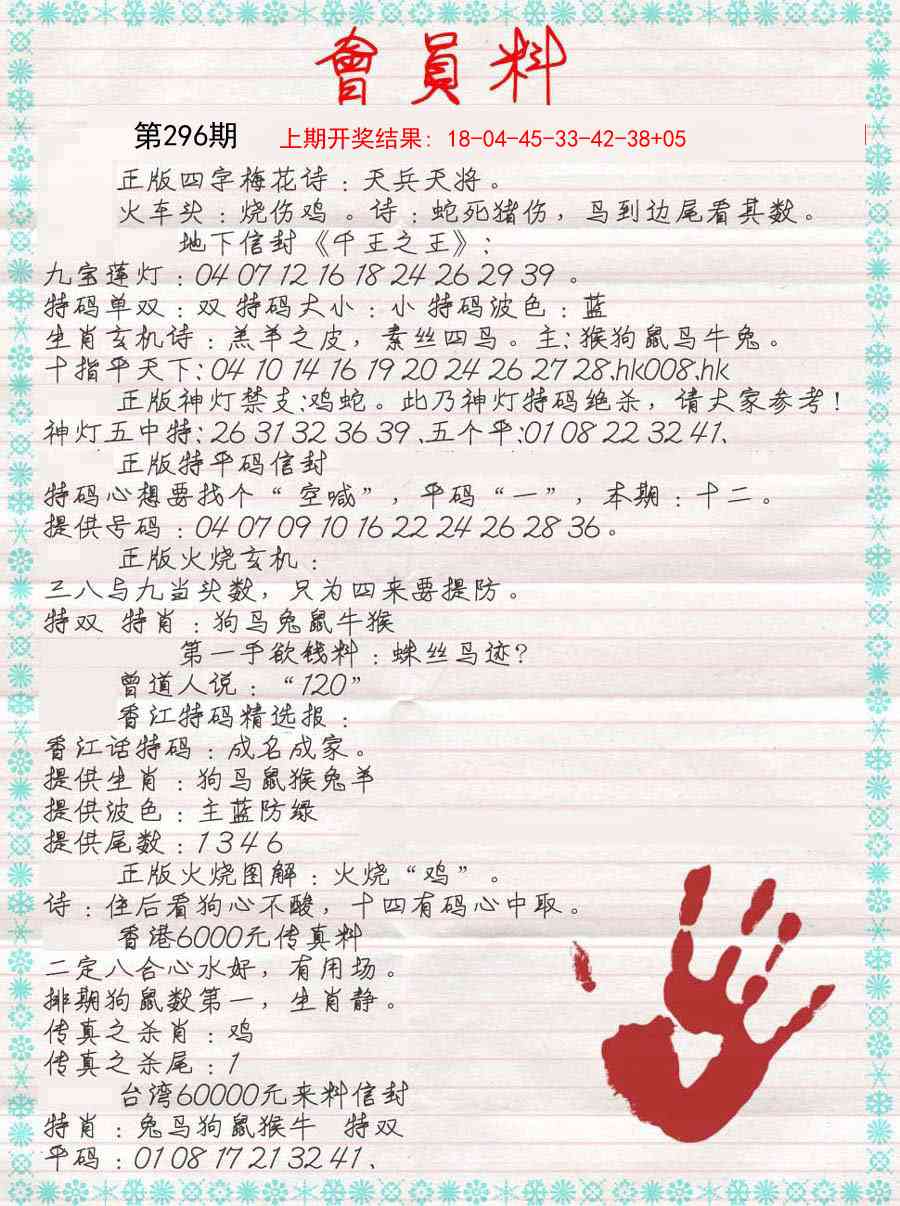 會員料
第296期 上期开奖结果: 18-04-45-33-42-38+05
正版四字梅花诗：天兵天将。
火车头：烧伤鸡 。诗：蛇死猪伤，鸟到边尾看其数。
地下信封《千王之王》:
九宝莲灯：04 07 12 16 18 24 26 29 39 。
特码单双：双 特码大小：小 特码波色：蓝
生肖玄机诗：羔羊之皮，素丝四鸟。主: 猴狗鼠鸟牛兔。
十指平天下: 04 10 14 16 19 20 24 26 27 28.hk008.hk
正版神灯禁支:鸡蛇。此乃神灯特码绝杀，请大家参考!
神灯五中特: 26 31 32 36 39 .五个平:01 08 22 32 41、
正版特平码信封
特码心想要找个“ 空喊”，平码“一”，本期：十二。
提供号码：04 07 09 10 16 22 24 26 28 36。
正版火烧玄机：
三八与九当头数，只为四来要提防。
特双 特肖：狗鸟兔鼠牛猴
第一手欲钱料：蛛丝鸟迹?
曾道人说：“120”
香江特码精选报：
香江话特码：成名成家。
提供生肖：狗鸟鼠猴兔羊
提供波色：主蓝防绿
提供尾数：1 3 4 6
正版火烧图解：火烧“鸡”。
诗：住后看狗心不酸，十四有码心中取。
香港6000元传真料
二定八合心水好，有用场。
排期狗鼠数第一，生肖静。
传真之杀肖：鸡
传真之杀尾：1
台湾60000元来料信封
特肖：兔鸟狗鼠猴牛 特双
平码：01 08 17 21 32 41、